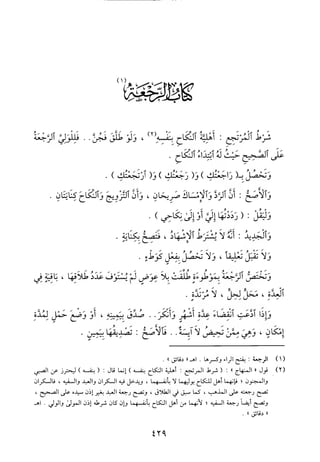 كتاب الرجعة (١)
شَرْطُ الْمُرْتَجِعِ : أَهْلِيَّةُ النِّكَاحِ بِنَفْسِهِ (٢) ، وَلَوْ طَلَّقَ فَجُنَّ . . فَلِلْوَلِيِّ الرَّجْعَةُ
عَلَى الصَّحِيحِ حَيْثُ لَهُ ابْتِدَاءُ النِّكَاحِ .
وَتَحْصُلُ بِـ( رَاجَعْتُكِ ) وَ( رَجَعْتُكِ ) وَ( ارْتَجَعْتُكِ ) .
وَالأَصَحُّ : أَنَّ الرَّدَّ وَالإِمْسَاكَ صَرِيحَانِ ، وَأَنَّ التَّزْوِيجَ وَالنِّكَاحَ كِنَايَتَانِ .
وَلْيَقُلْ : ( رَدَدْتُهَا إِلَيَّ أَوْ إِلَى نِكَاحِي ) .
وَالْجَدِيدُ : أَنَّهُ لاَ يُشْتَرَطُ الإِشْهَادُ ، فَتَصِحُّ بِكِنَايَةٍ .
وَلاَ تَقْبَلُ تَعْلِيقاً ، وَلاَ تَحْصُلُ بِفِعْلٍ كَوَطْءٍ .
وَتَخْتَصُّ الرَّجْعَةُ بِمَوْطُوءَةٍ طُلِّقَتْ بِلاَ عِوَضٍ لَمْ يُسْتَوْفَ عَدَدُ طَلاَقِهَا ، بَاقِيَةٍ فِي
الْعِدَّةِ ، مَحَلٍّ لِحِلٍّ ، لاَ مُرْتَدَّةٍ .
وَإِذَا ادَّعَتِ انْقِضَاءَ عِدَّةِ أَشْهُرٍ وَأَنْكَرَ . . صُدِّقَ بِيَمِينِهِ ، أَوْ وَضْعَ حَمْلٍ لِمُدَّةِ
إِمْكَانٍ ، وَهِيَ مِمَّنْ تَحِيضُ لاَ آيِسَةٌ . . فَالأَصَحُّ : تَصْدِيقُهَا بِيَمِينٍ .
(١) الرجعة : بفتح الراء وكسرها . اهـ « دقائق » .
(٢) قول « المنهاج » : ( شرط المرتجع : أهلية النكاح بنفسه ) إنما قال : ( بنفسه ) ليحترز عن الصبي
والمجنون ؛ فإنهما أهل للنكاح بوليهما لا بأنفسهما ، ويدخل فيه السكران والعبد والسفيه ، فالسكران
تصح رجعته على المذهب ، كما سبق في الطلاق ، وتصح رجعة العبد بغير إذن سيده على الصحيح ،
وتصح أيضاً رجعة السفيه ؛ لأنهما من أهل النكاح بأنفسهما وإن كان شرطه إذن المولى والولي . اهـ
« دقائق » .
٤٢٩